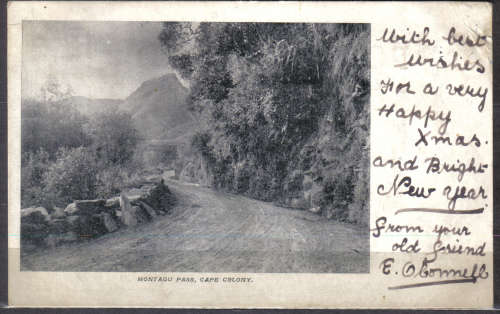 With best
wishes
For a very
Happy
Xmas.
and Bright
New Year
From your
old friend
E. O'Connell
MONTAGU PASS, CAPE COLONY.